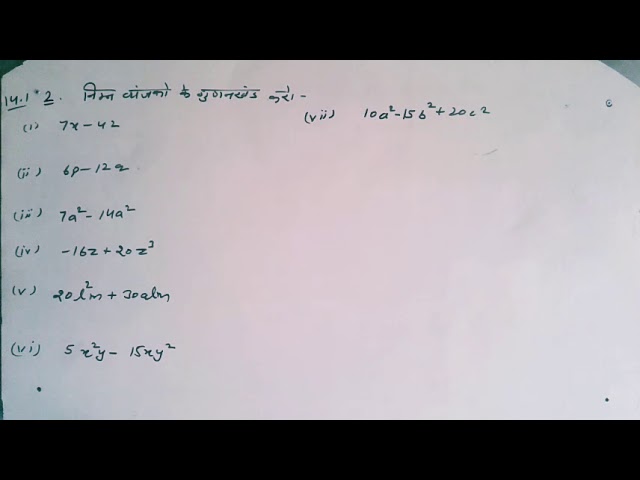 14.1 2. निम्न व्यंजकों के गुणनखंड करो -
(i) 7x - 42
(ii) 6p - 12q
(iii) 7a² - 14a²
(iv) -16z + 20z³
(v) 20l²m + 30alm
(vi) 5x²y - 15xy²
(vii) 10a² - 15b² + 20c²